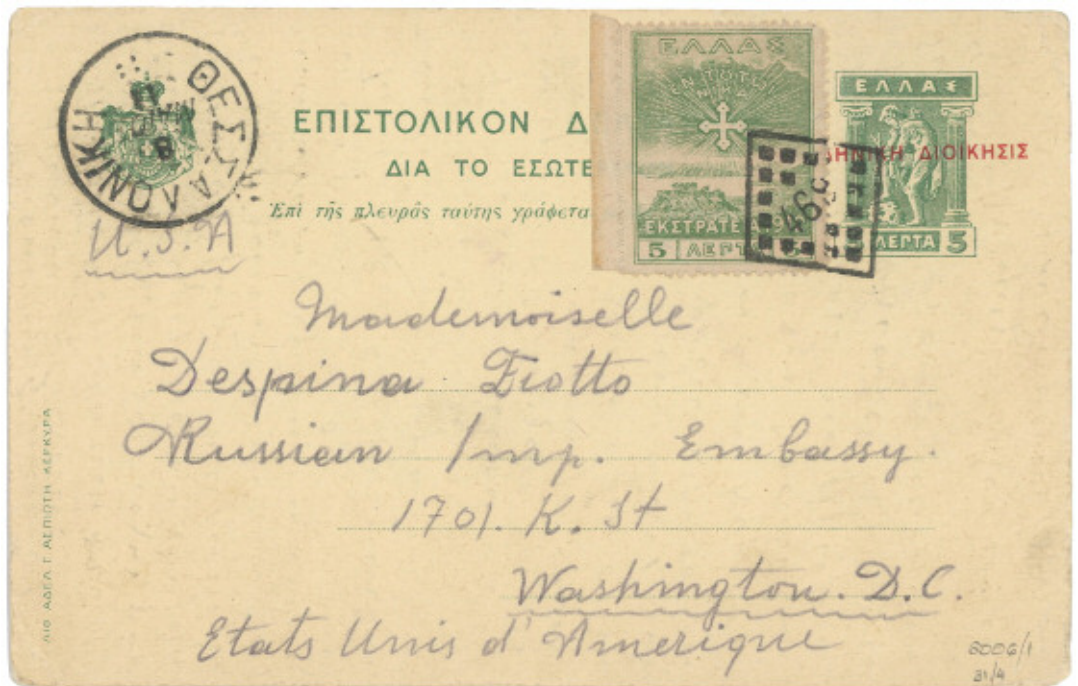 ΘΕΣΣΑΛΟΝΙΚΗ
8 ΜΑΡ
ΕΠΙΣΤΟΛΙΚΟΝ Δ
ΔΙΑ ΤΟ ΕΣΩΤΕ
Ἐπὶ τῆς πλευρᾶς ταύτης γράφεται
ΕΛΛΑΣ
ΕΝ ΤΟΥΤΩ
ΝΙΚΑ
ΕΚΣΤΡΑΤΕ
5 ΛΕΠΤ
ΕΛΛΑΣ
ΔΙΟΙΚΗΣΙΣ
ΛΕΠΤΑ 5
U.S.A
Mademoiselle
Despina
Russian Imp. Embassy.
1701. K. St
Washington. D.C.
Etats Unis d'Amerique
ΛΙΘ ΑΔΕΛ Γ ΑΣΠΙΩΤΗ ΚΕΡΚΥΡΑ
31/4